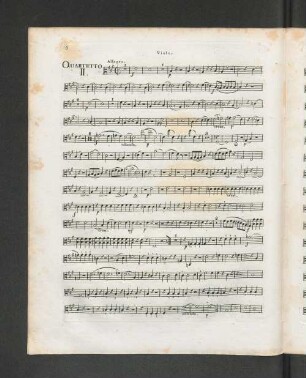 Viola.
Allegro.
QUARTETTO
II.